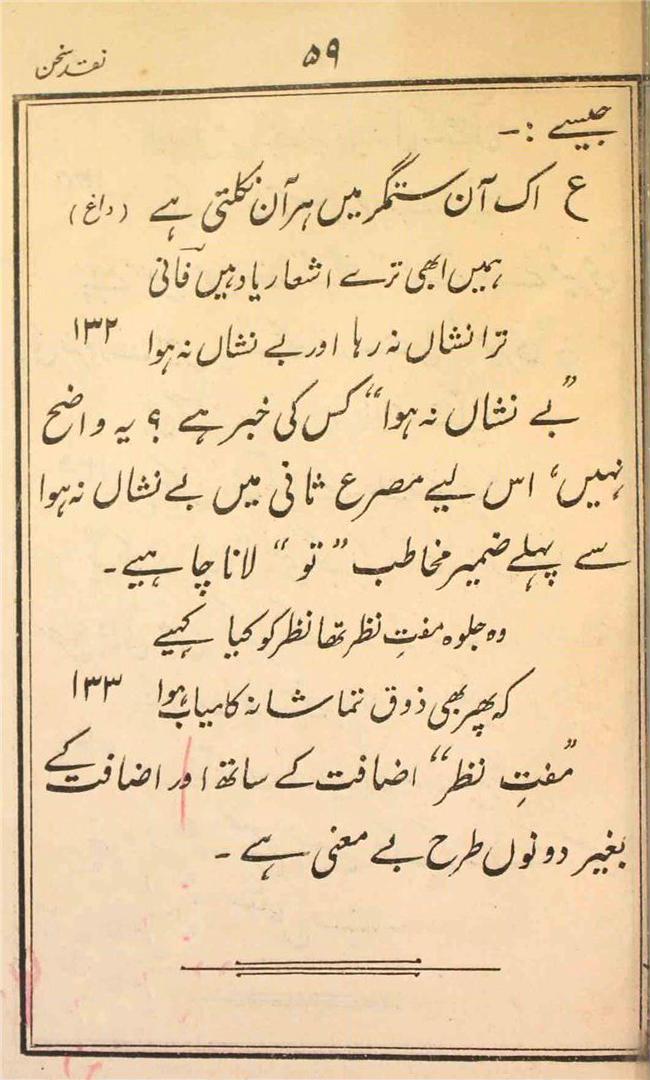 نقد سخن
۵۹
جیسے :-
ع اک آن ستمگر میں ہر آن نکلتی ہے (داغ)
ہمیں ابھی ترے اشعار یاد ہیں فانی
ترا نشاں نہ رہا اور بے نشاں نہ ہوا ۱۳۲
”بے نشاں نہ ہوا“ کس کی خبر ہے ؟ یہ واضح
نہیں، اس لیے مصرع ثانی میں بے نشاں نہ ہوا
سے پہلے ضمیر مخاطب ”تو“ لانا چاہیے۔
وہ جلوہ مفتِ نظر تھا نظر کو کیا کہیے
کہ پھر بھی ذوق تماشا نہ کامیاب ہوا ۱۳۳
”مفتِ نظر“ اضافت کے ساتھ اور اضافت کے
بغیر دونوں طرح بے معنی ہے۔